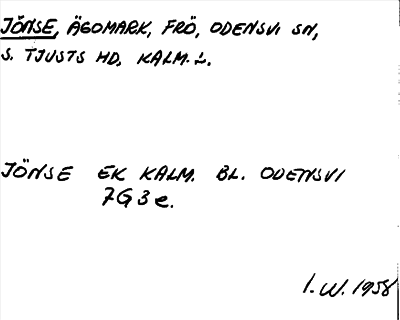 JÖNSE, ÄGOMARK, FRÖ, ODENSVI SN,
S. TJUSTS HD, KALM. L.
JÖNSE EK KALM. BL. ODENSVI
7G3e.
I.W. 1958